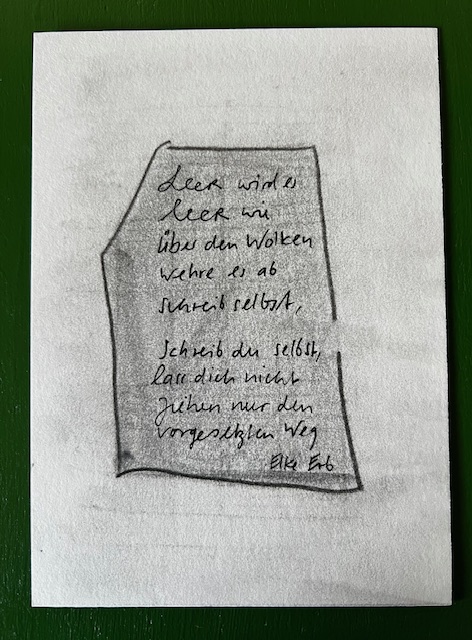 Leer wird es
leer wie
über den Wolken
wehre es ab
schreib selbst,
schreib du selbst,
lass dich nicht
ziehen nur den
vorgesetzten Weg
Elke Erb